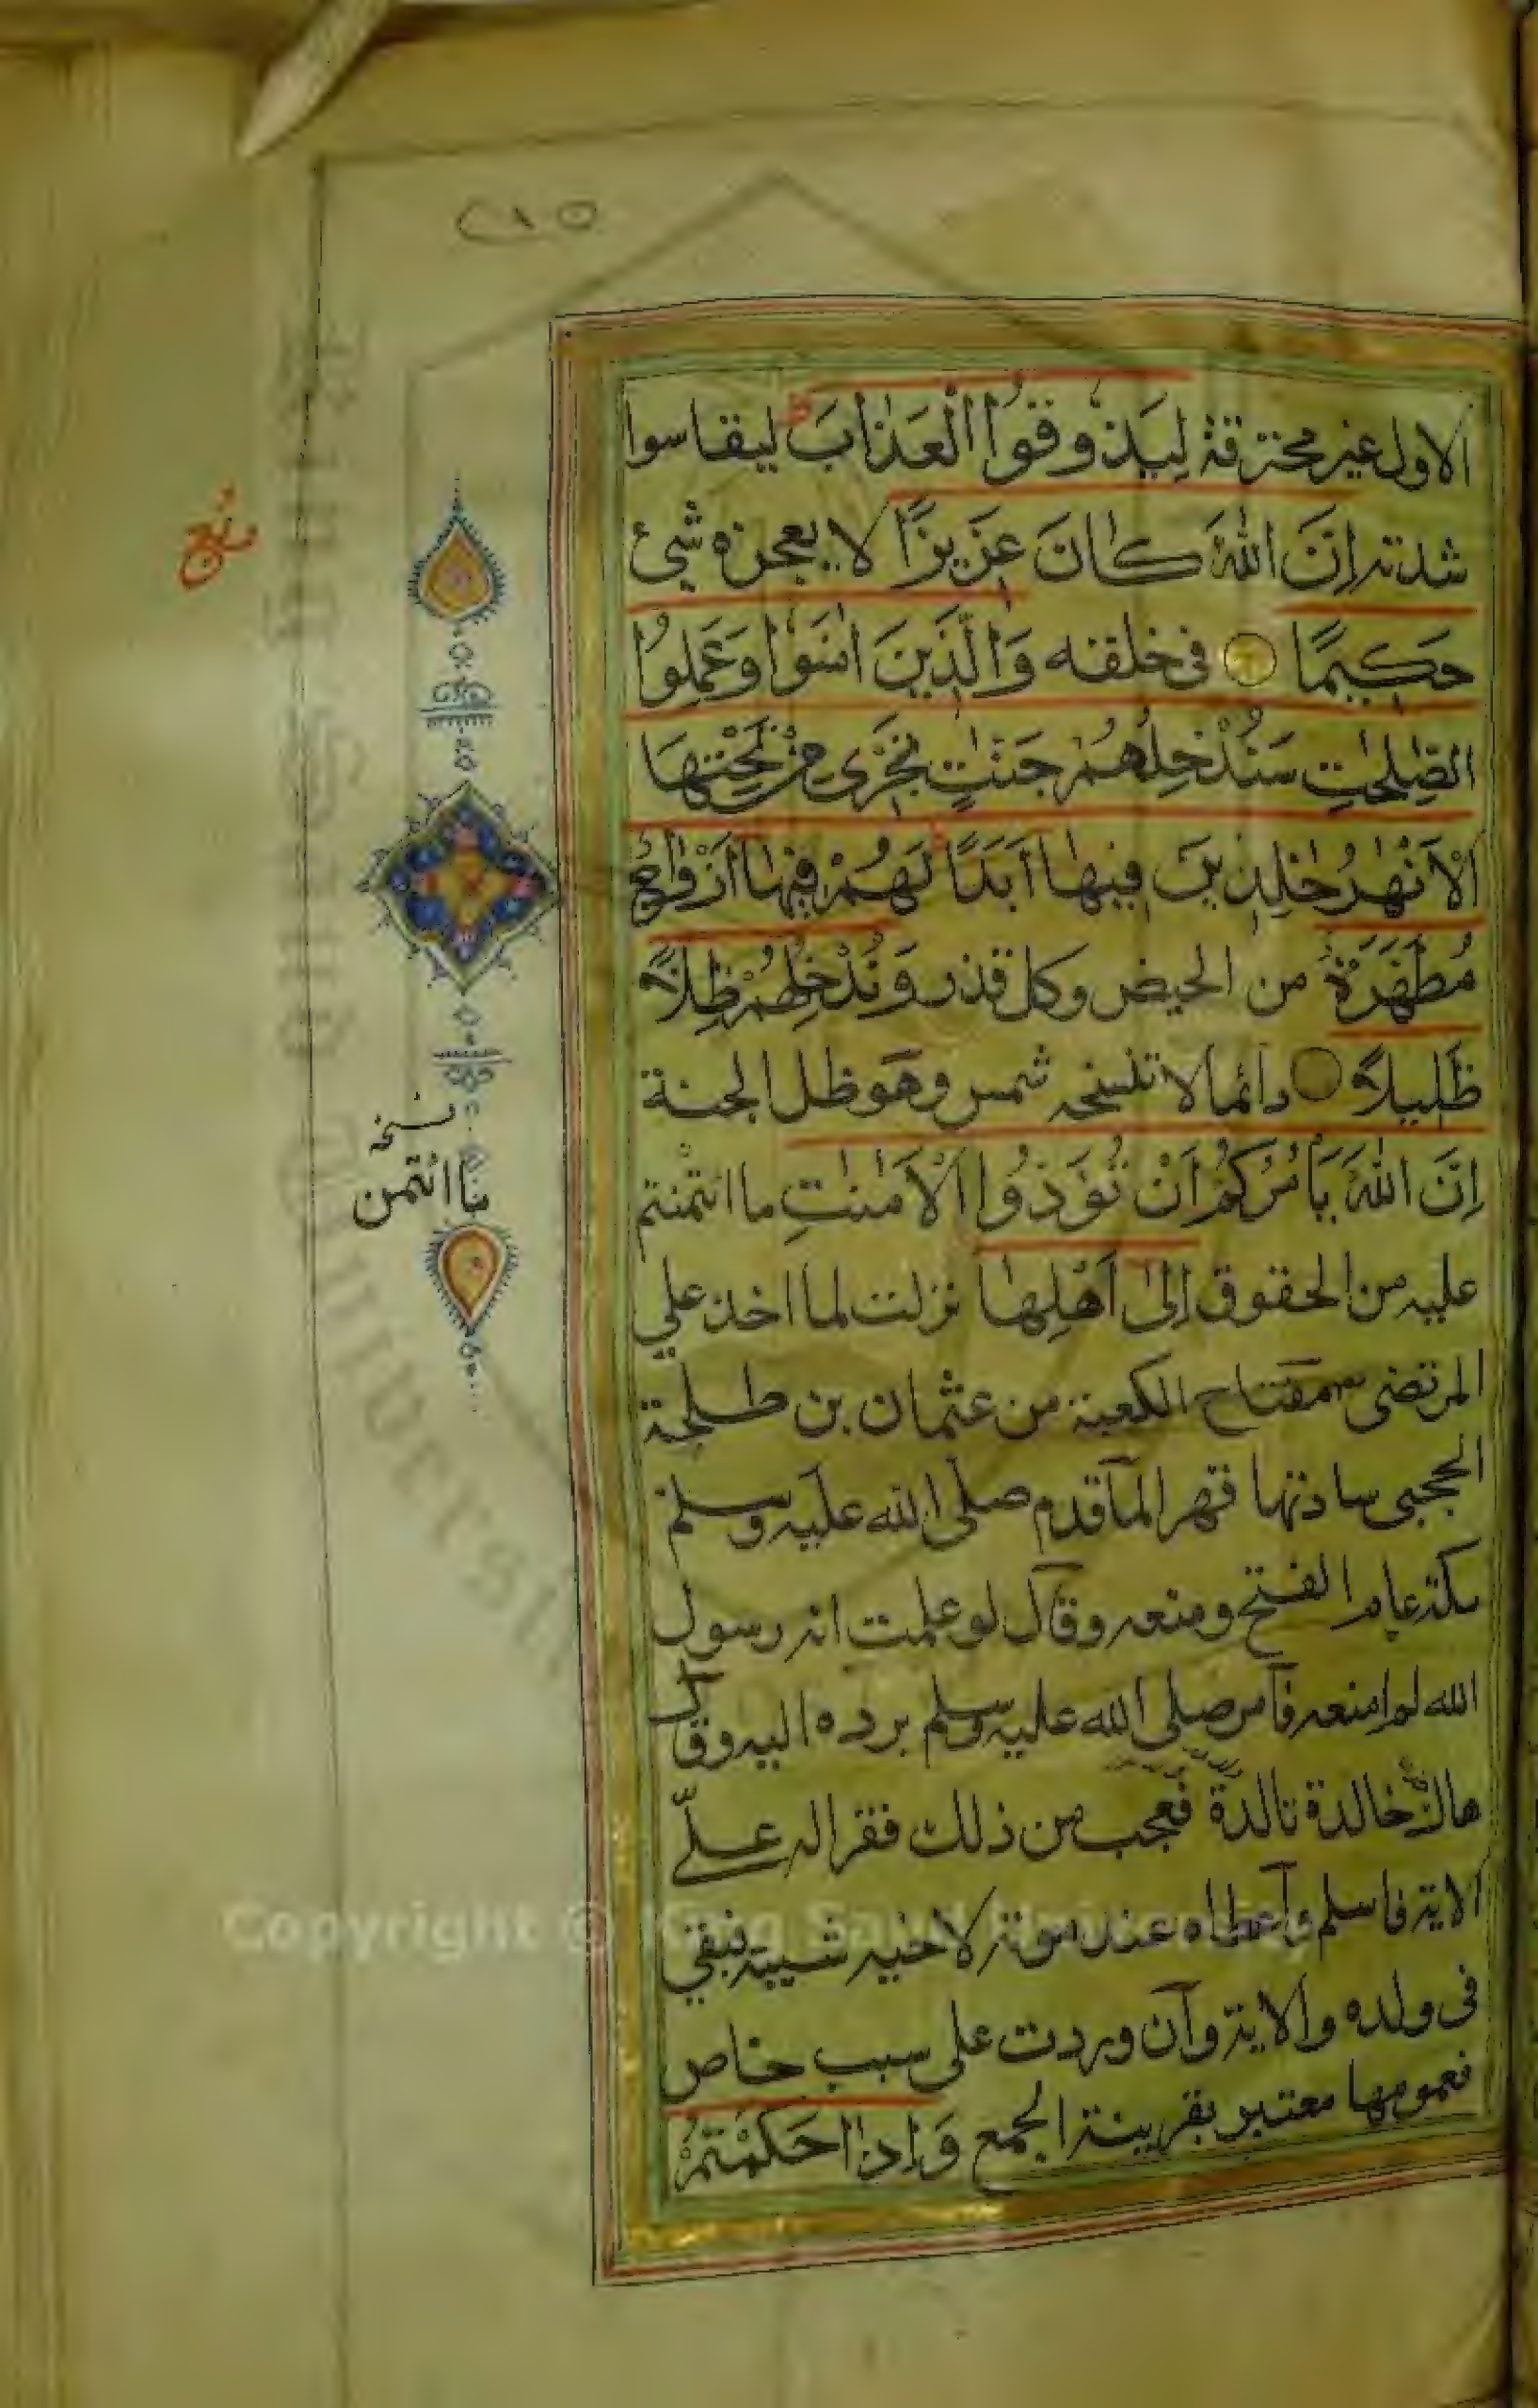 ٢١٥
الاول غير محترقة لِيَذُوقُوا الْعَذَابَ ليقاسوا
شدته اِنَّ اللّٰهَ كَانَ عَزِيزًا لا يعجزه شئ
حَكِيمًا فى خلقه وَالَّذِينَ اٰمَنُوا وَعَمِلُوا
الصّٰلِحٰتِ سَنُدْخِلُهُمْ جَنّٰتٍ تَجْرِى مِنْ تَحْتِهَا
الْاَنْهٰرُ خٰلِدِينَ فِيهَا اَبَدًا لَهُمْ فِيهَا اَزْوَاجٌ
مُطَهَّرَةٌ من الحيض وكل قذر وَنُدْخِلُهُمْ ظِلًّا
ظَلِيلًا دائما لا تنسخه شمس وهو ظل الجنة
اِنَّ اللّٰهَ يَاْمُرُكُمْ اَنْ تُؤَدُّوا الْاَمٰنٰتِ ما ائتمنتم
عليه من الحقوق اِلٰى اَهْلِهَا نزلت لما اخذ على
المرتضى مفتاح الكعبة من عثمان بن طلحة
الحجبى سادنها قهرا لما قدم صلى الله عليه وسلم
مكة عام الفتح ومنعه وقال لو علمت انه رسول
الله لم امنعه فامر صلى الله عليه وسلم برده اليه وقال
هاك خالدة تالدة فعجب من ذلك فقرا له علىّ
الاية فاسلم واعطاه عند موته لاخيه شيبة فبقى
فى ولده والاية وان وردت على سبب خاص
فعمومها معتبر بقرينة الجمع وَاِذَا حَكَمْتُمْ
نسخه
ما ائتمن
Copyright © King Saud University